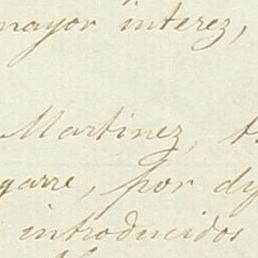 mayor interez,
Martinez, t
garre, por dy
introducidos